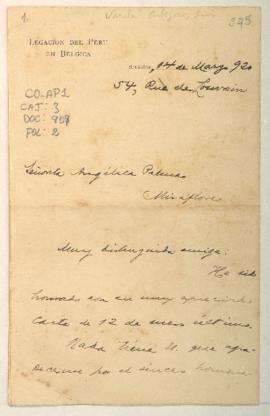 1.
Varela Orbegoso, Luis
275
LEGACIÓN DEL PERÚ
EN BELGICA
14 de Marzo 920
54, Rue de Louvain
CO-AP1
CAJ: 3
DOC: 909
FOL: 2
Señorita Angélica Palma
Miraflores
Muy distinguida amiga:
He sido
honrado con su muy apreciada
carta de 12 de enero último.
Nada tiene U. que agra-
decerme por el sincero homena-